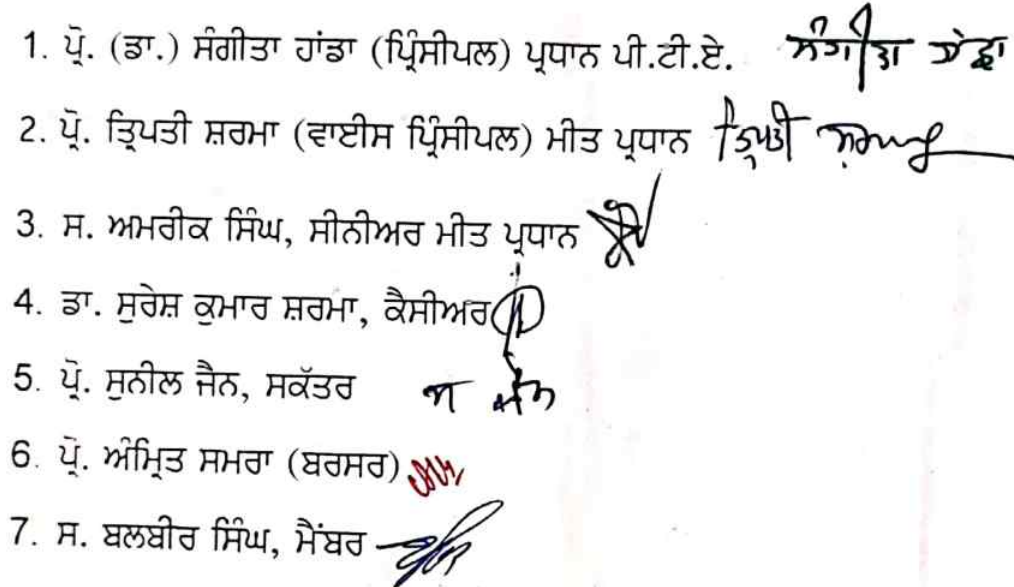 1. ਪ੍ਰੋ. (ਡਾ.) ਸੰਗੀਤਾ ਹਾਂਡਾ (ਪ੍ਰਿੰਸੀਪਲ) ਪ੍ਰਧਾਨ ਪੀ.ਟੀ.ਏ. ਸੰਗੀਤਾ ਹਾਂਡਾ
2. ਪ੍ਰੋ. ਤ੍ਰਿਪਤੀ ਸ਼ਰਮਾ (ਵਾਈਸ ਪ੍ਰਿੰਸੀਪਲ) ਮੀਤ ਪ੍ਰਧਾਨ ਤ੍ਰਿਪਤੀ ਸ਼ਰਮਾ
3. ਸ. ਅਮਰੀਕ ਸਿੰਘ, ਸੀਨੀਅਰ ਮੀਤ ਪ੍ਰਧਾਨ
4. ਡਾ. ਸੁਰੇਸ਼ ਕੁਮਾਰ ਸ਼ਰਮਾ, ਕੈਸੀਅਰ
5. ਪ੍ਰੋ. ਸੁਨੀਲ ਜੈਨ, ਸਕੱਤਰ
6. ਪ੍ਰੋ. ਅੰਮ੍ਰਿਤ ਸਮਰਾ (ਬਰਸਰ)
7. ਸ. ਬਲਬੀਰ ਸਿੰਘ, ਮੈਂਬਰ